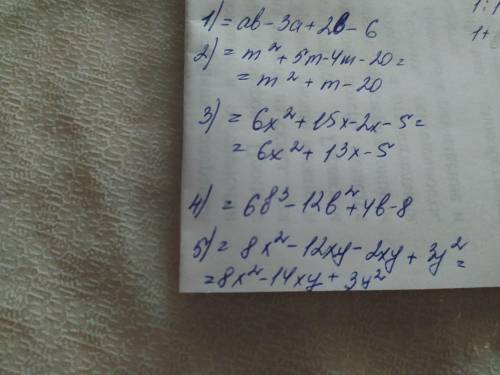 1) = ab - 3a + 2b - 6
2) = m² + 5m - 4m - 20 =
= m² + m - 20
3) = 6x² + 15x - 2x - 5 =
= 6x² + 13x - 5
4) = 6b³ - 12b² + 4b - 8
5) = 8x² - 12xy - 2xy + 3y² =
= 8x² - 14xy + 3y²
1+